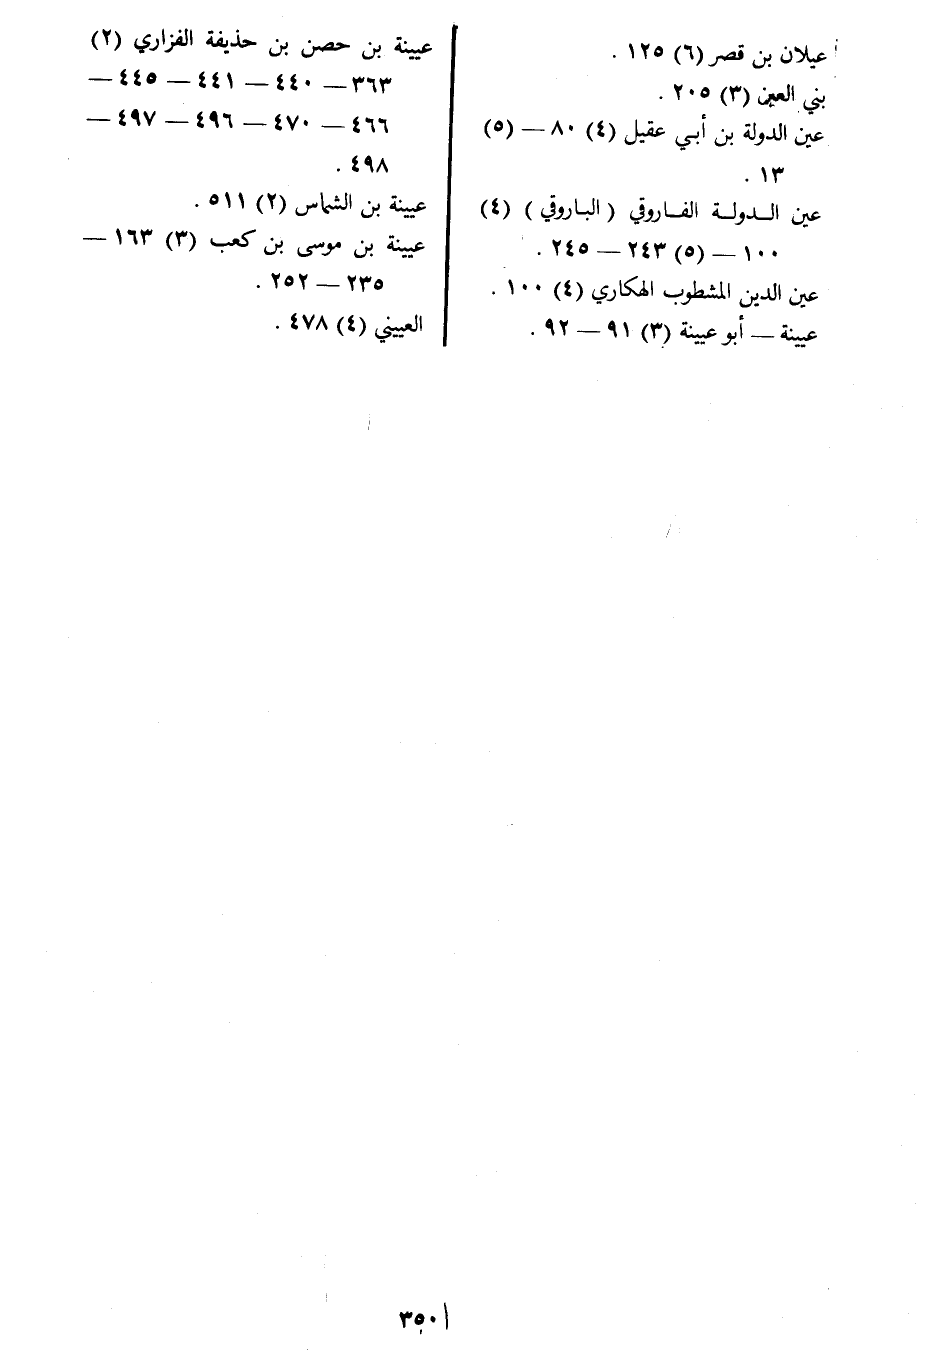 عيلان بن قصر (٦) ١٢٥ .
بني العين (٣) ٢٠٥ .
عين الدولة بن أبي عقيل (٤) ٨٠ — (٥)
١٣ .
عين الـدولـة الفـاروقي ( البـاروقي ) (٤)
١٠٠ — (٥) ٢٤٣ — ٢٤٥ .
عين الدين المشطوب الهكاري (٤) ١٠٠ .
عيينة — أبو عيينة (٣) ٩١ — ٩٢ .
عيينة بن حصن بن حذيفة الفزاري (٢)
٣٦٣ — ٤٤٠ — ٤٤١ — ٤٤٥ —
٤٦٦ — ٤٧٠ — ٤٩٦ — ٤٩٧ —
٤٩٨ .
عيينة بن الشماس (٢) ٥١١ .
عيينة بن موسى بن كعب (٣) ١٦٣ —
٢٣٥ — ٢٥٢ .
العييني (٤) ٤٧٨ .
٣٥٠